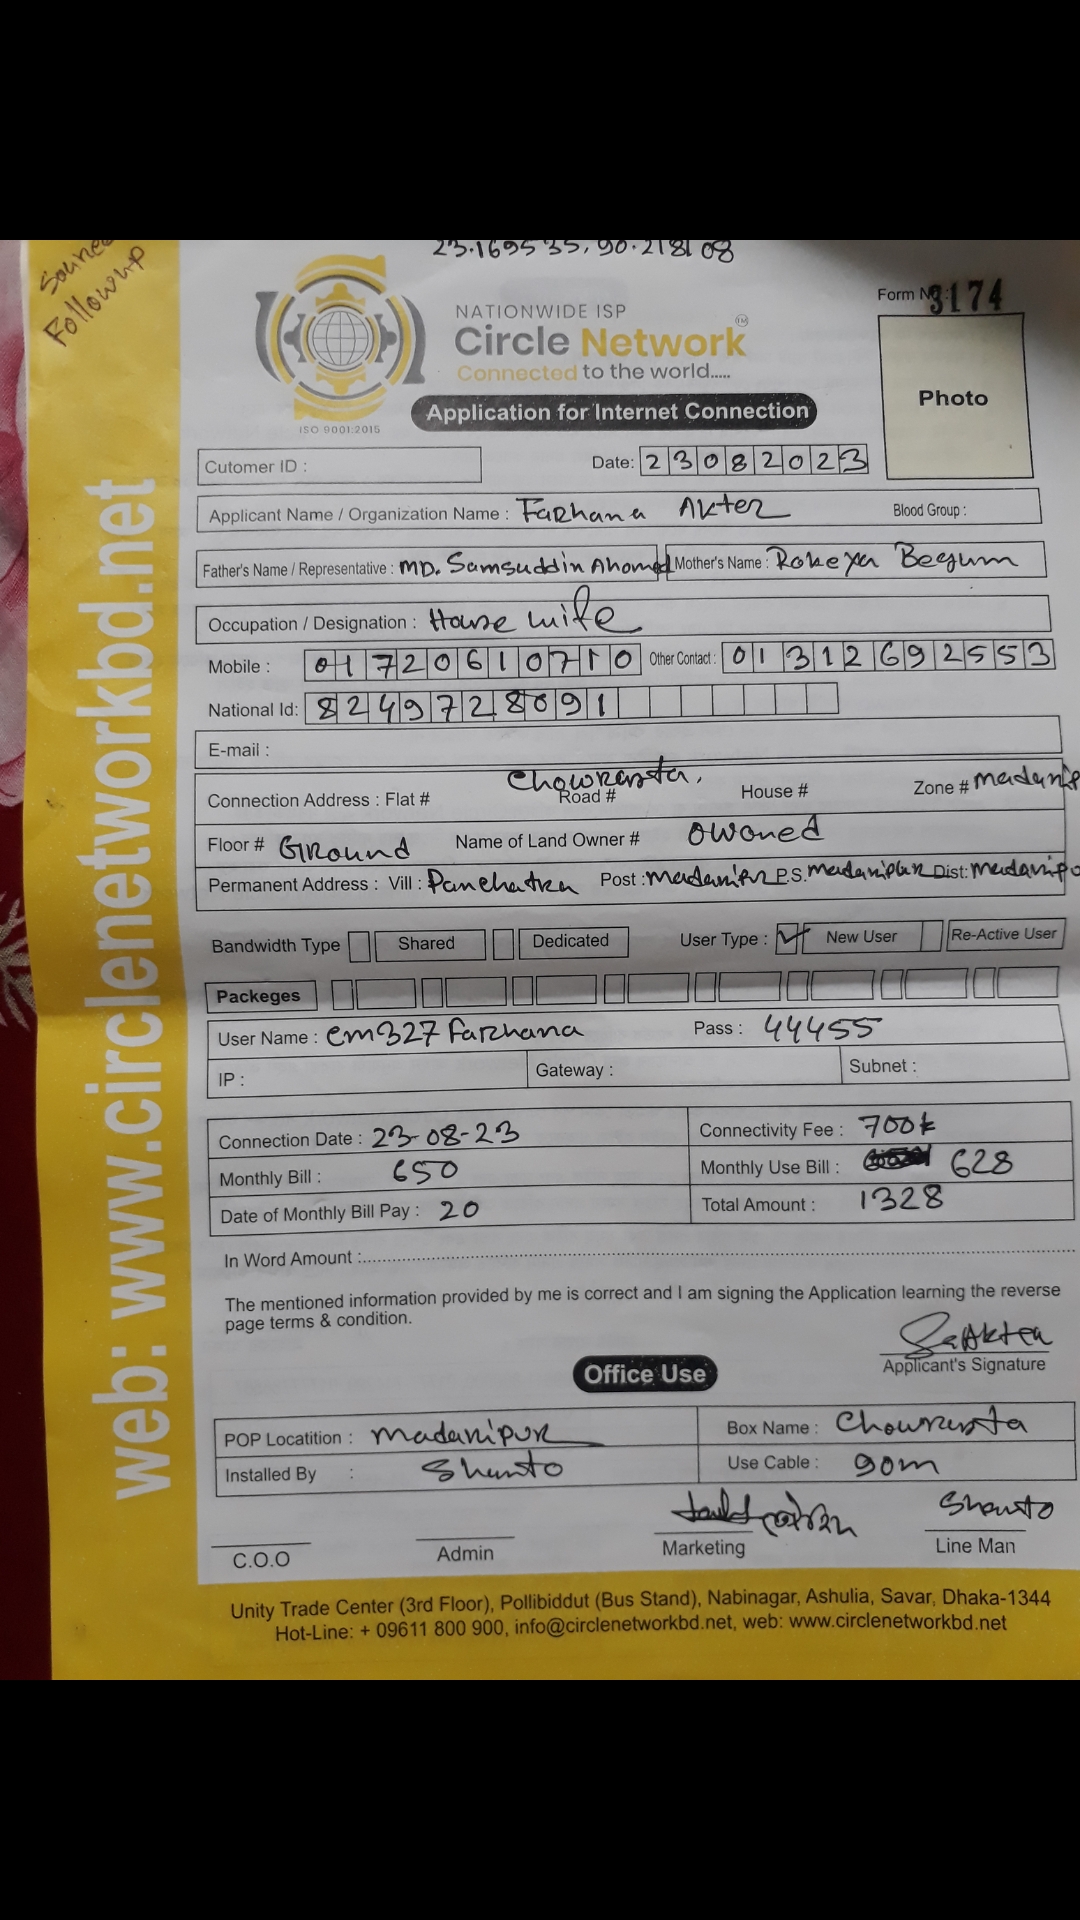 Source
Followup
23.169535, 90.218108
Form No: 3174
NATIONWIDE ISP
Circle Network TM
Connected to the world.....
ISO 9001:2015
Photo
Application for Internet Connection
Cutomer ID :
Date: 23082023
Applicant Name / Organization Name : Farhana Akter
Blood Group :
Father's Name / Representative : MD. Samsuddin Ahomed Mother's Name : Rokeya Begum
Occupation / Designation : House wife
Mobile : 01720610710 Other Contact : 01312692553
National Id: 8249728091
E-mail :
Chowrasta,
Connection Address : Flat # Road # House # Zone # madarip
Floor # Ground Name of Land Owner # owoned
Permanent Address : Vill : Panchatra Post : madaripur P.S. madaripur Dist: madaripu
Bandwidth Type Shared Dedicated User Type : ✓ New User Re-Active User
Packeges
User Name : cm327 farhana Pass : 44455
IP : Gateway : Subnet :
Connection Date : 23-08-23 Connectivity Fee : 700
Monthly Bill : 650 Monthly Use Bill : 628
Date of Monthly Bill Pay : 20 Total Amount : 1328
In Word Amount :
The mentioned information provided by me is correct and I am signing the Application learning the reverse
page terms & condition.
Applicant's Signature
Office Use
POP Locatition : Madaripur Box Name : Chowrasta
Installed By : Shanto Use Cable : 90m
Shanto
C.O.O Admin Marketing Line Man
Unity Trade Center (3rd Floor), Pollibiddut (Bus Stand), Nabinagar, Ashulia, Savar, Dhaka-1344
Hot-Line: + 09611 800 900, info@circlenetworkbd.net, web: www.circlenetworkbd.net
web: www.circlenetworkbd.net